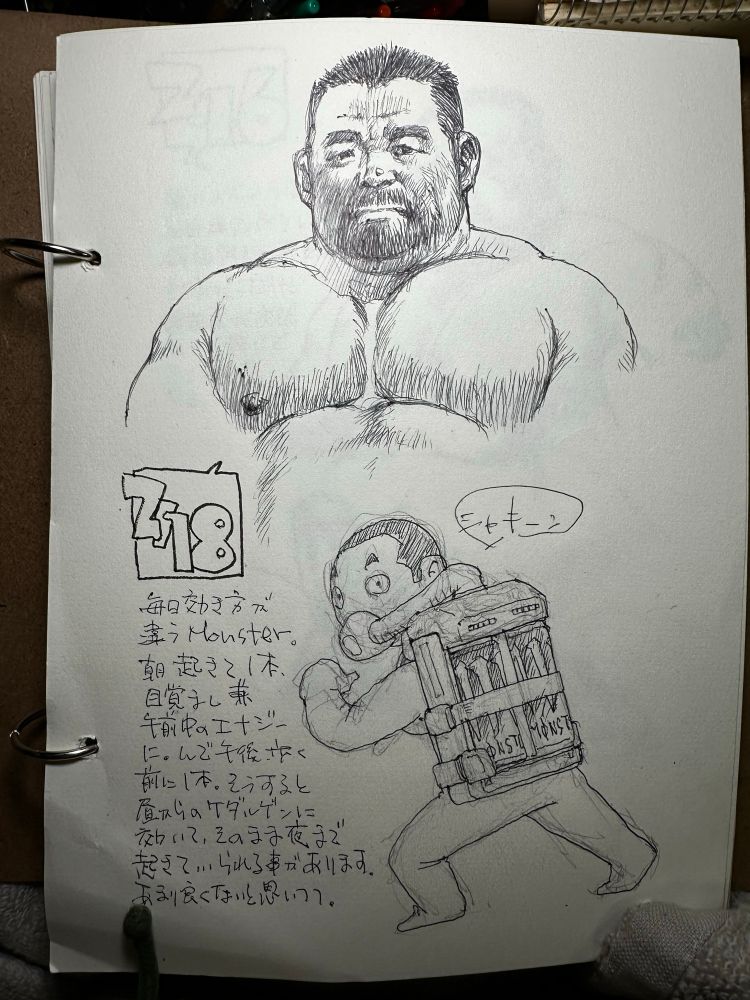 シャキーン
7/18
毎日効き方が
違うMonster。
朝起きて1本、
目覚まし兼
午前中のエナジー
に。んで午後歩く
前に1本。そうすると
昼からのケダルゲンに
効いて、そのまま夜まで
起きていられる事があります。
あまり良くないと思いつつ。
MONST
MONST